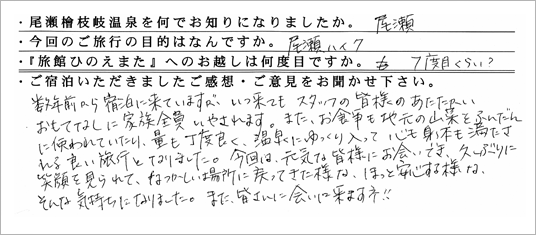 ・尾瀬檜枝岐温泉を何でお知りになりましたか。 尾瀬
・今回のご旅行の目的はなんですか。 尾瀬ハイク
・『旅館ひのえまた』へのお越しは何度目ですか。 7度目くらい？
・ご宿泊いただきましたご感想・ご意見をお聞かせ下さい。
数年前から宿泊に来ていますが、いつ来てもスタッフの皆様のあたたかい
おもてなしに家族全員いやされます。また、お食事も地元の山菜をふんだん
に使われていたり、量も丁度良く、温泉にゆっくり入って心も身体も満たさ
れる良い旅行となりました。今回は、元気な皆様にお会いでき、久しぶりに
笑顔を見られて、なつかしい場所に戻ってきた様な、ほっと安心する様な、
そんな気持ちになりました。また、皆さんに会いに来ますネ!!